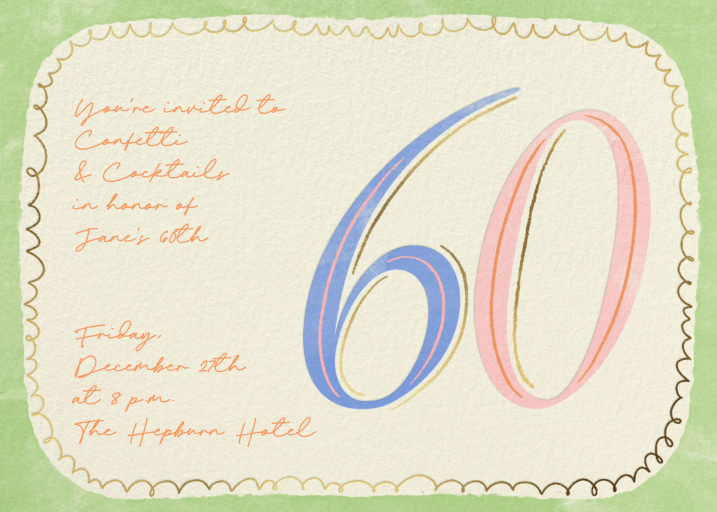 You're invited to
Confetti
& Cocktails
in honor of
Jane's 60th
60
Friday,
December 27th
at 8 p.m.
The Hepburn Hotel